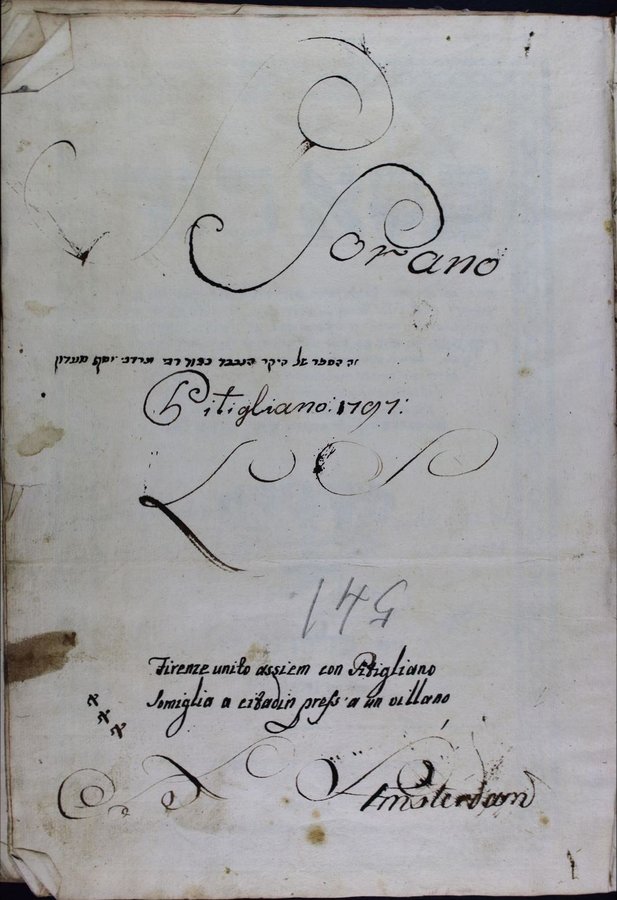 Sorano
זה הספר של היקר הנכבד כמור רבי
Pitigliano: 1797:
541
Firenze unito assiem con Pitigliano
Somiglia a citadin press a un villano
א
א
א
Amsterdam